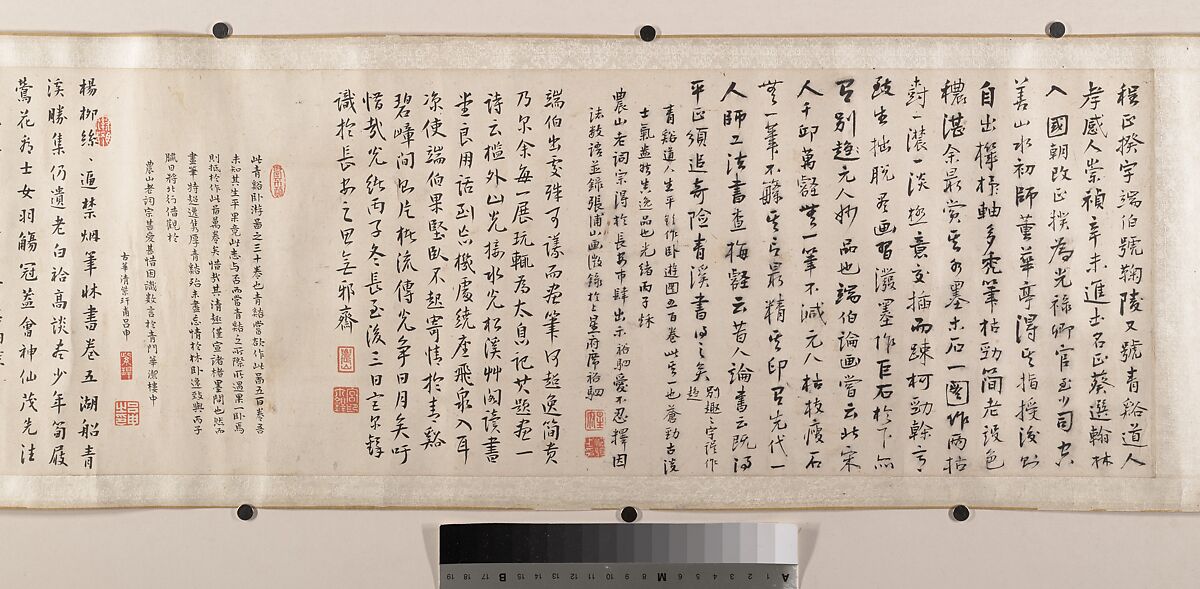 程正揆字端伯號鞠陵又號青谿道人
孝感人崇禎辛未進士名正葵選翰林
入國朝改正揆為光祿卿官至少司空
善山水初師董華亭得其指授後則
自出機杼軸多禿筆枯勁簡老設色
穠湛余最賞其水墨木石一圖作兩枯
樹一濃一淡極意交插而疎柯勁榦高
致生拙脫盡畫習潑墨作巨石於下亦
另別趣元人妙品也端伯論畫嘗云此宋
人千邱萬壑無一筆不減元人枯枝瘦石
無一筆不繁其言最精其印有先代一
人師工法書查梅壑云昔人論書云既得
平正須追奇險青溪書得之矣
別趣之字誤作
趨
青谿道人生平欲作臥遊圖五百卷此其一也蒼勁古淡
士氣盎然生逸品也光緒丙子秋
農山老詞宗得於長安市肆出示祐馹愛不忍釋因
法教語並錄張浦山畫徵錄於上
端伯出處殊可議而畫筆何超逸簡貴
乃尔余每一展玩輒為太息記其題畫一
詩云檻外山光撼水光松溪艸閣讀書
堂良用話到忘機處繞座飛泉入耳
涼使端伯果堅臥不起寄情於青谿
碧嶂間凸片楮流傳光爭日月矣吁
惜哉光緒丙子冬長至後三日
識於長安之思無邪齋
此青谿臥游圖之三十卷也青結嘗欲作此圖五百卷吾
未知其生平果竟此志與否而當青結之所際所遇果一臥焉
則抵於作此百萬卷矣惜哉其清趣僅宣諸楮墨間也然而
畫筆特超逸雋厚青結殆未盡忘情於林臥逸致與丙子
臘日將北行借觀於
農山老詞宗甚愛甚惜因識數言於青門華潔樓中
古華清葉玕甫呂申
楊柳絲絲遍禁烟筆牀書卷五湖船青
溪勝集仍遺老白袷高談盡少年筍屐
鶯花為士女羽觴冠蓋會神仙茂先注